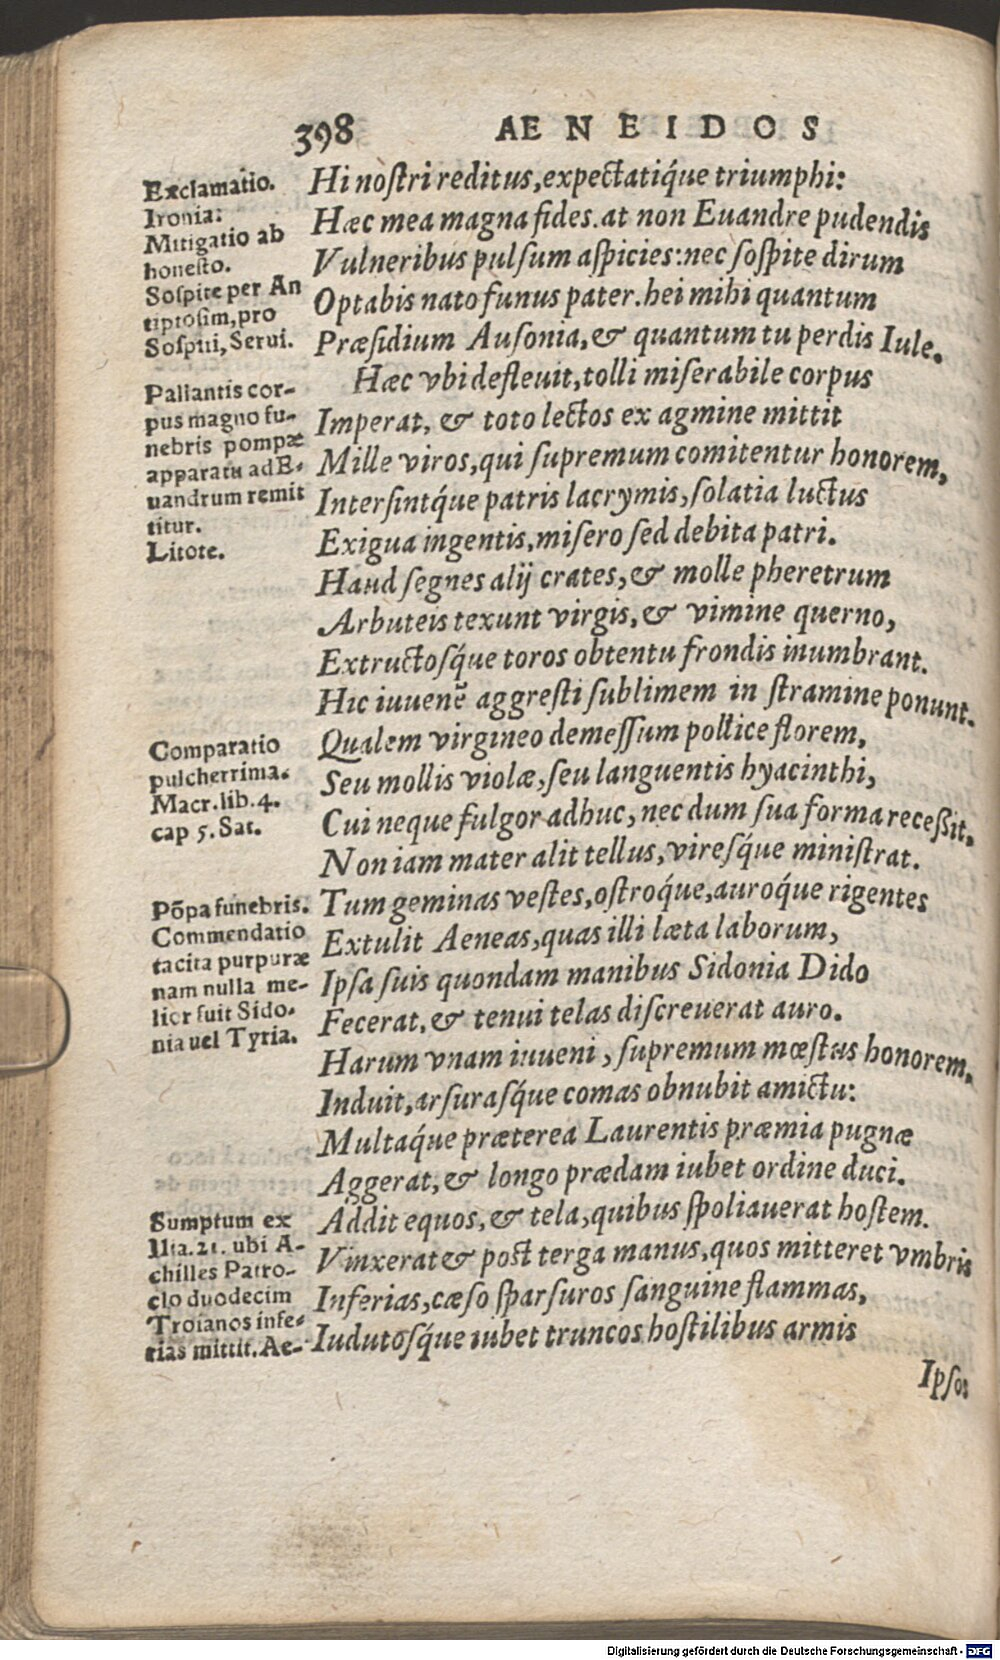 398 AENEIDOS
Exclamatio.
Ironia:
Mitigatio ab
honesto.
Sospite per An
tiptosim, pro
Sospiti, Serui.
Pallantis cor-
pus magno fu-
nebris pompæ
apparatu ad E-
uandrum remit
titur.
Litote.
Comparatio
pulcherrima.
Macr. lib. 4.
cap 5. Sat.
Põpa funebris.
Commendatio
tacita purpuræ
nam nulla me-
lior fuit Sido-
nia uel Tyria.
Sumptum ex
Ilia. 21. ubi A-
chilles Patro-
clo duodecim
Troianos infe-
rias mittit. Ae-
Hi noſtri reditus, expectatiq́ue triumphi:
Hæc mea magna fides. at non Euandre pudendis
Vulneribus pulſum aſpicies: nec ſoſpite dirum
Optabis nato funus pater. hei mihi quantum
Præſidium Auſonia, & quantum tu perdis Iule.
Hæc vbi defleuit, tolli miſerabile corpus
Imperat, & toto lectos ex agmine mittit
Mille viros, qui ſupremum comitentur honorem,
Interſintq́ue patris lacrymis, ſolatia luctus
Exigua ingentis, miſero ſed debita patri.
Haud ſegnes alij crates, & molle pheretrum
Arbuteis texunt virgis, & vimine querno,
Extructoſq́ue toros obtentu frondis inumbrant.
Hic iuuenẽ aggreſti ſublimem in ſtramine ponunt.
Qualem virgineo demeſſum pollice florem,
Seu mollis violæ, ſeu languentis hyacinthi,
Cui neque fulgor adhuc, nec dum ſua forma receßit.
Non iam mater alit tellus, vireſq́ue miniſtrat.
Tum geminas veſtes, oſtroq́ue, auroq́ue rigentes
Extulit Aeneas, quas illi læta laborum,
Ipſa ſuis quondam manibus Sidonia Dido
Fecerat, & tenui telas diſcreuerat auro.
Harum vnam iuueni, ſupremum mœſtus honorem,
Induit, arſuraſq́ue comas obnubit amictu:
Multaq́ue præterea Laurentis præmia pugnæ
Aggerat, & longo prædam iubet ordine duci.
Addit equos, & tela, quibus ſpoliauerat hoſtem.
Vinxerat & poſt terga manus, quos mitteret vmbris
Inferias, cæſo ſparſuros ſanguine flammas,
Iudutoſq́ue iubet truncos hoſtilibus armis
Ipſos
Digitalisierung gefördert durch die Deutsche Forschungsgemeinschaft - DFG